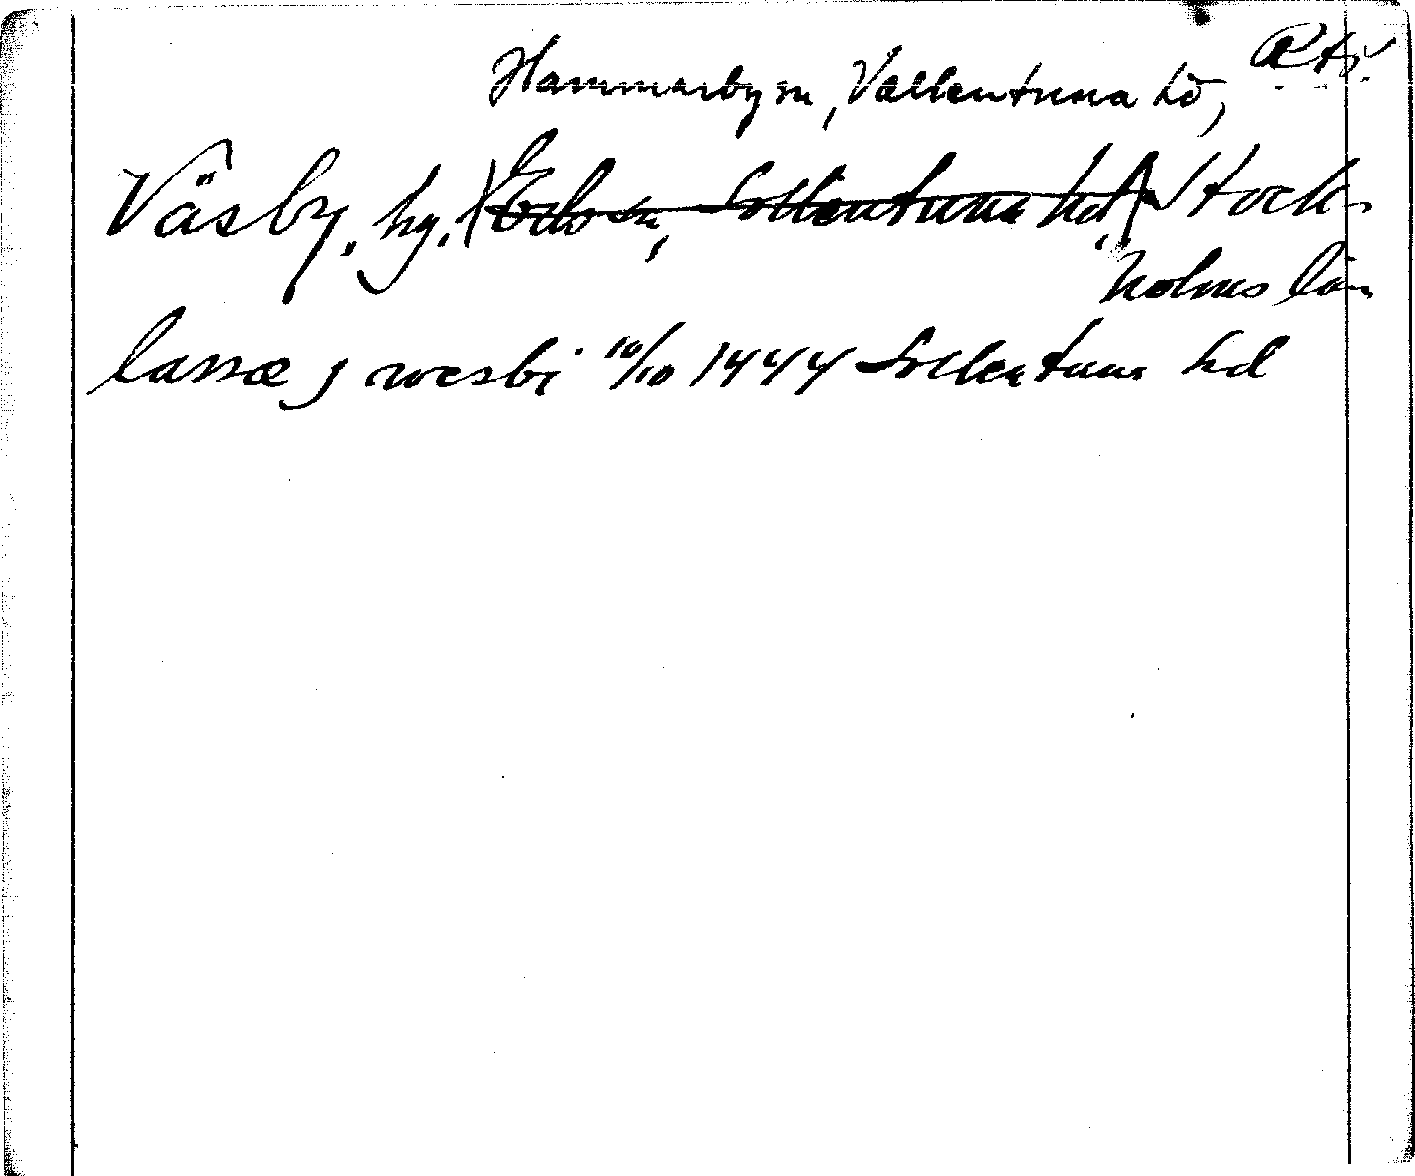 Hammarby sn, Vallentuna hd,
Väsby, hg. (Eds sn, Sollentuna hd,) Stock-
holms län
lassæ j wæsbi 10/10 1444 Sollentuna hd